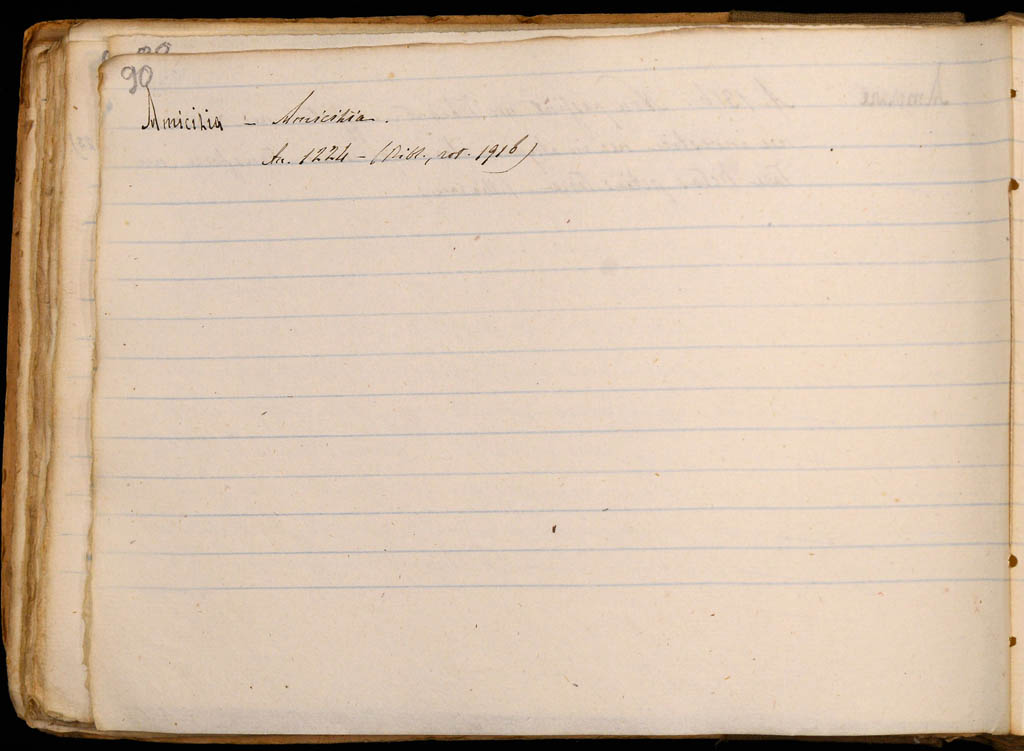 90
Amicitia - Amicitia.
An. 1224 - (Bibl., rot. 1916)